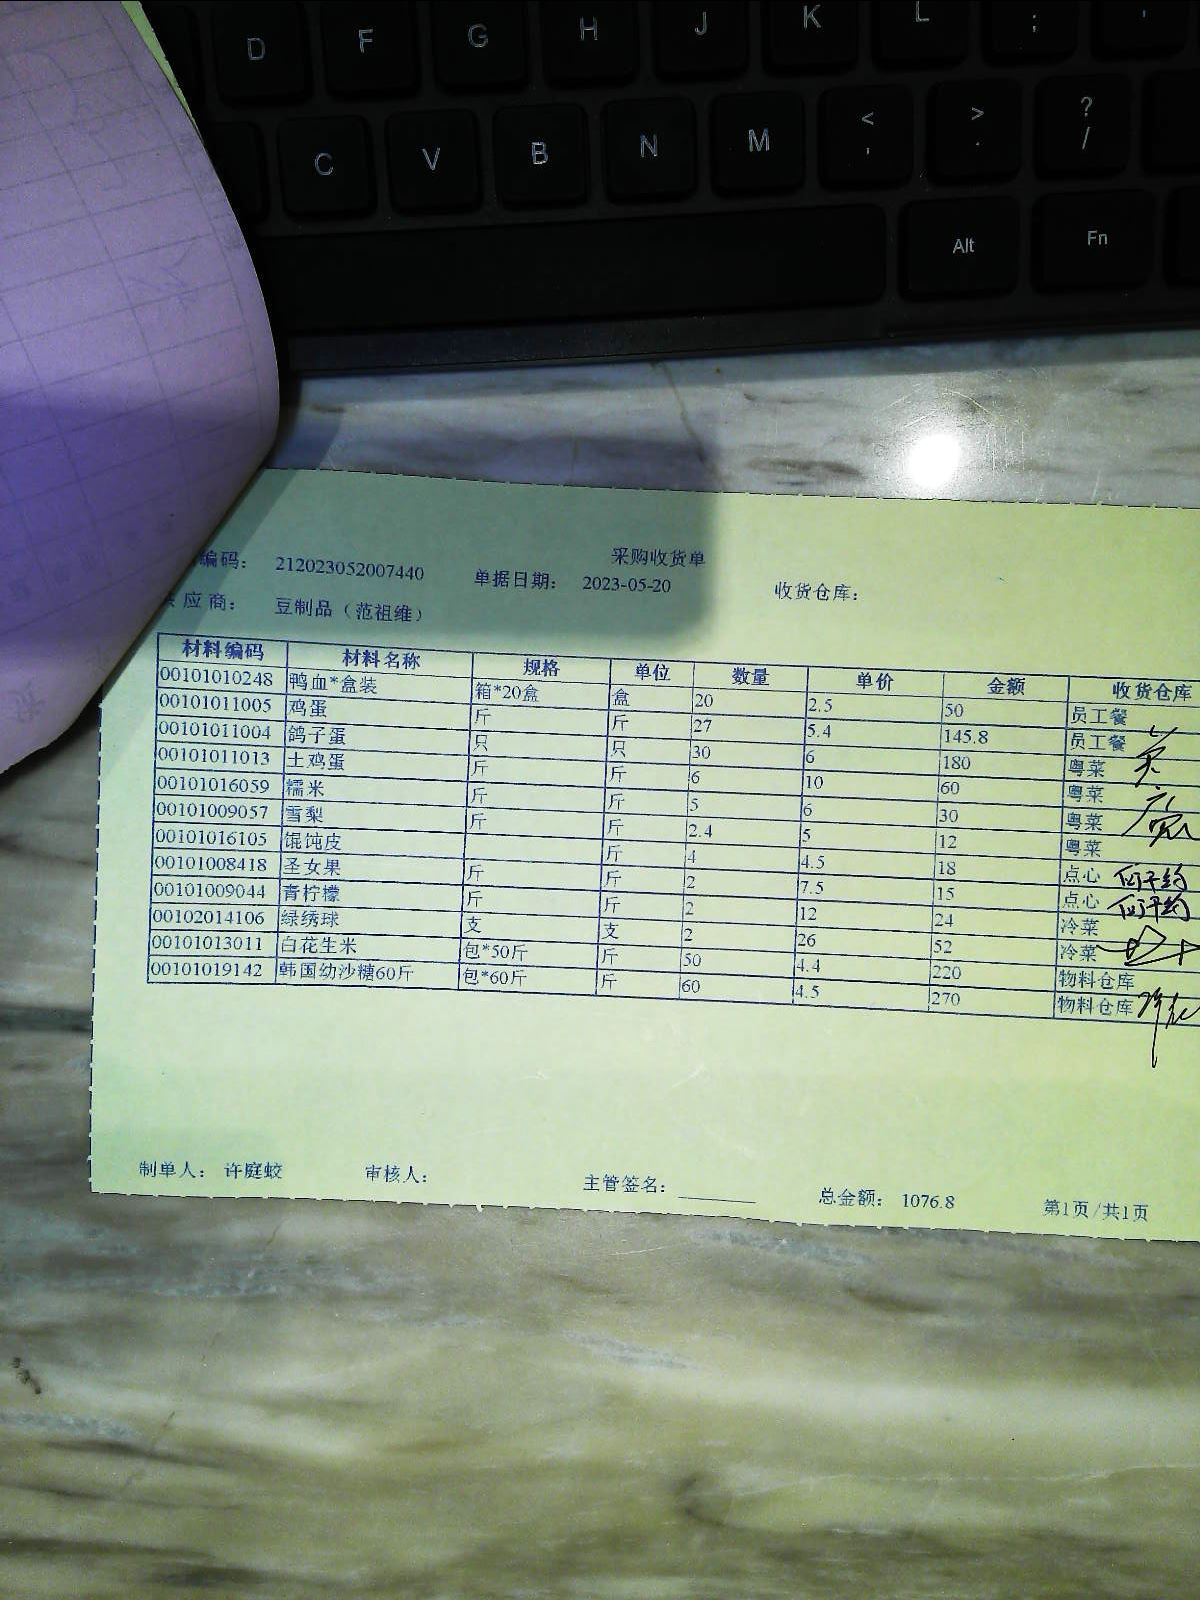 D F G H J K L ; '
C V B N M < , > . ? /
Alt Fn
采购收货单
编码： 212023052007440 单据日期： 2023-05-20 收货仓库：
应商： 豆制品（范祖维）
材料编码 材料名称 规格 单位 数量 单价 金额 收货仓库
00101010248 鸭血*盒装 箱*20盒 盒 20 2.5 50 员工餐
00101011005 鸡蛋 斤 斤 27 5.4 145.8 员工餐
00101011004 鸽子蛋 只 只 30 6 180 粤菜
00101011013 土鸡蛋 斤 斤 6 10 60 粤菜
00101016059 糯米 斤 斤 5 6 30 粤菜
00101009057 雪梨 斤 斤 2.4 5 12 粤菜
00101016105 馄饨皮 斤 4 4.5 18 点心
00101008418 圣女果 斤 斤 2 7.5 15 点心
00101009044 青柠檬 斤 斤 2 12 24 冷菜
00102014106 绿绣球 支 支 2 26 52 冷菜
00101013011 白花生米 包*50斤 斤 50 4.4 220 物料仓库
00101019142 韩国幼沙糖60斤 包*60斤 斤 60 4.5 270 物料仓库
制单人： 许庭蛟 审核人： 主管签名： 总金额： 1076.8 第1页/共1页